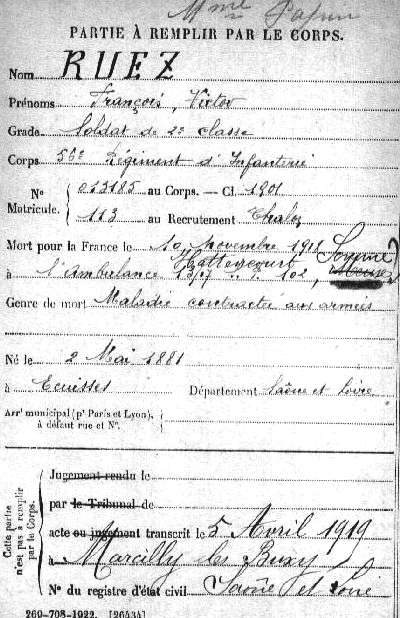 Mme Papin
PARTIE À REMPLIR PAR LE CORPS.
Nom RUEZ
Prénoms François, Victor
Grade Soldat de 2e classe
Corps 56e Régiment d'Infanterie
No Matricule. 013185 au Corps. — Cl. 1901
113 au Recrutement Chalon
Mort pour la France le 10 novembre 1918
à l'Ambulance Hattencourt Somme
Genre de mort Maladie contractée aux armées
Né le 2 Mai 1881
à Ecuisses Département Saône et Loire
Arrt municipal (pr Paris et Lyon),
à défaut rue et No.
Cette partie n'est pas à remplir par le Corps.
Jugement rendu le
par le Tribunal de
acte ou jugement transcrit le 5 Avril 1919
à Marcilly les Buxy
No du registre d'état civil Saône et Loire
269-708-1922. [26434]